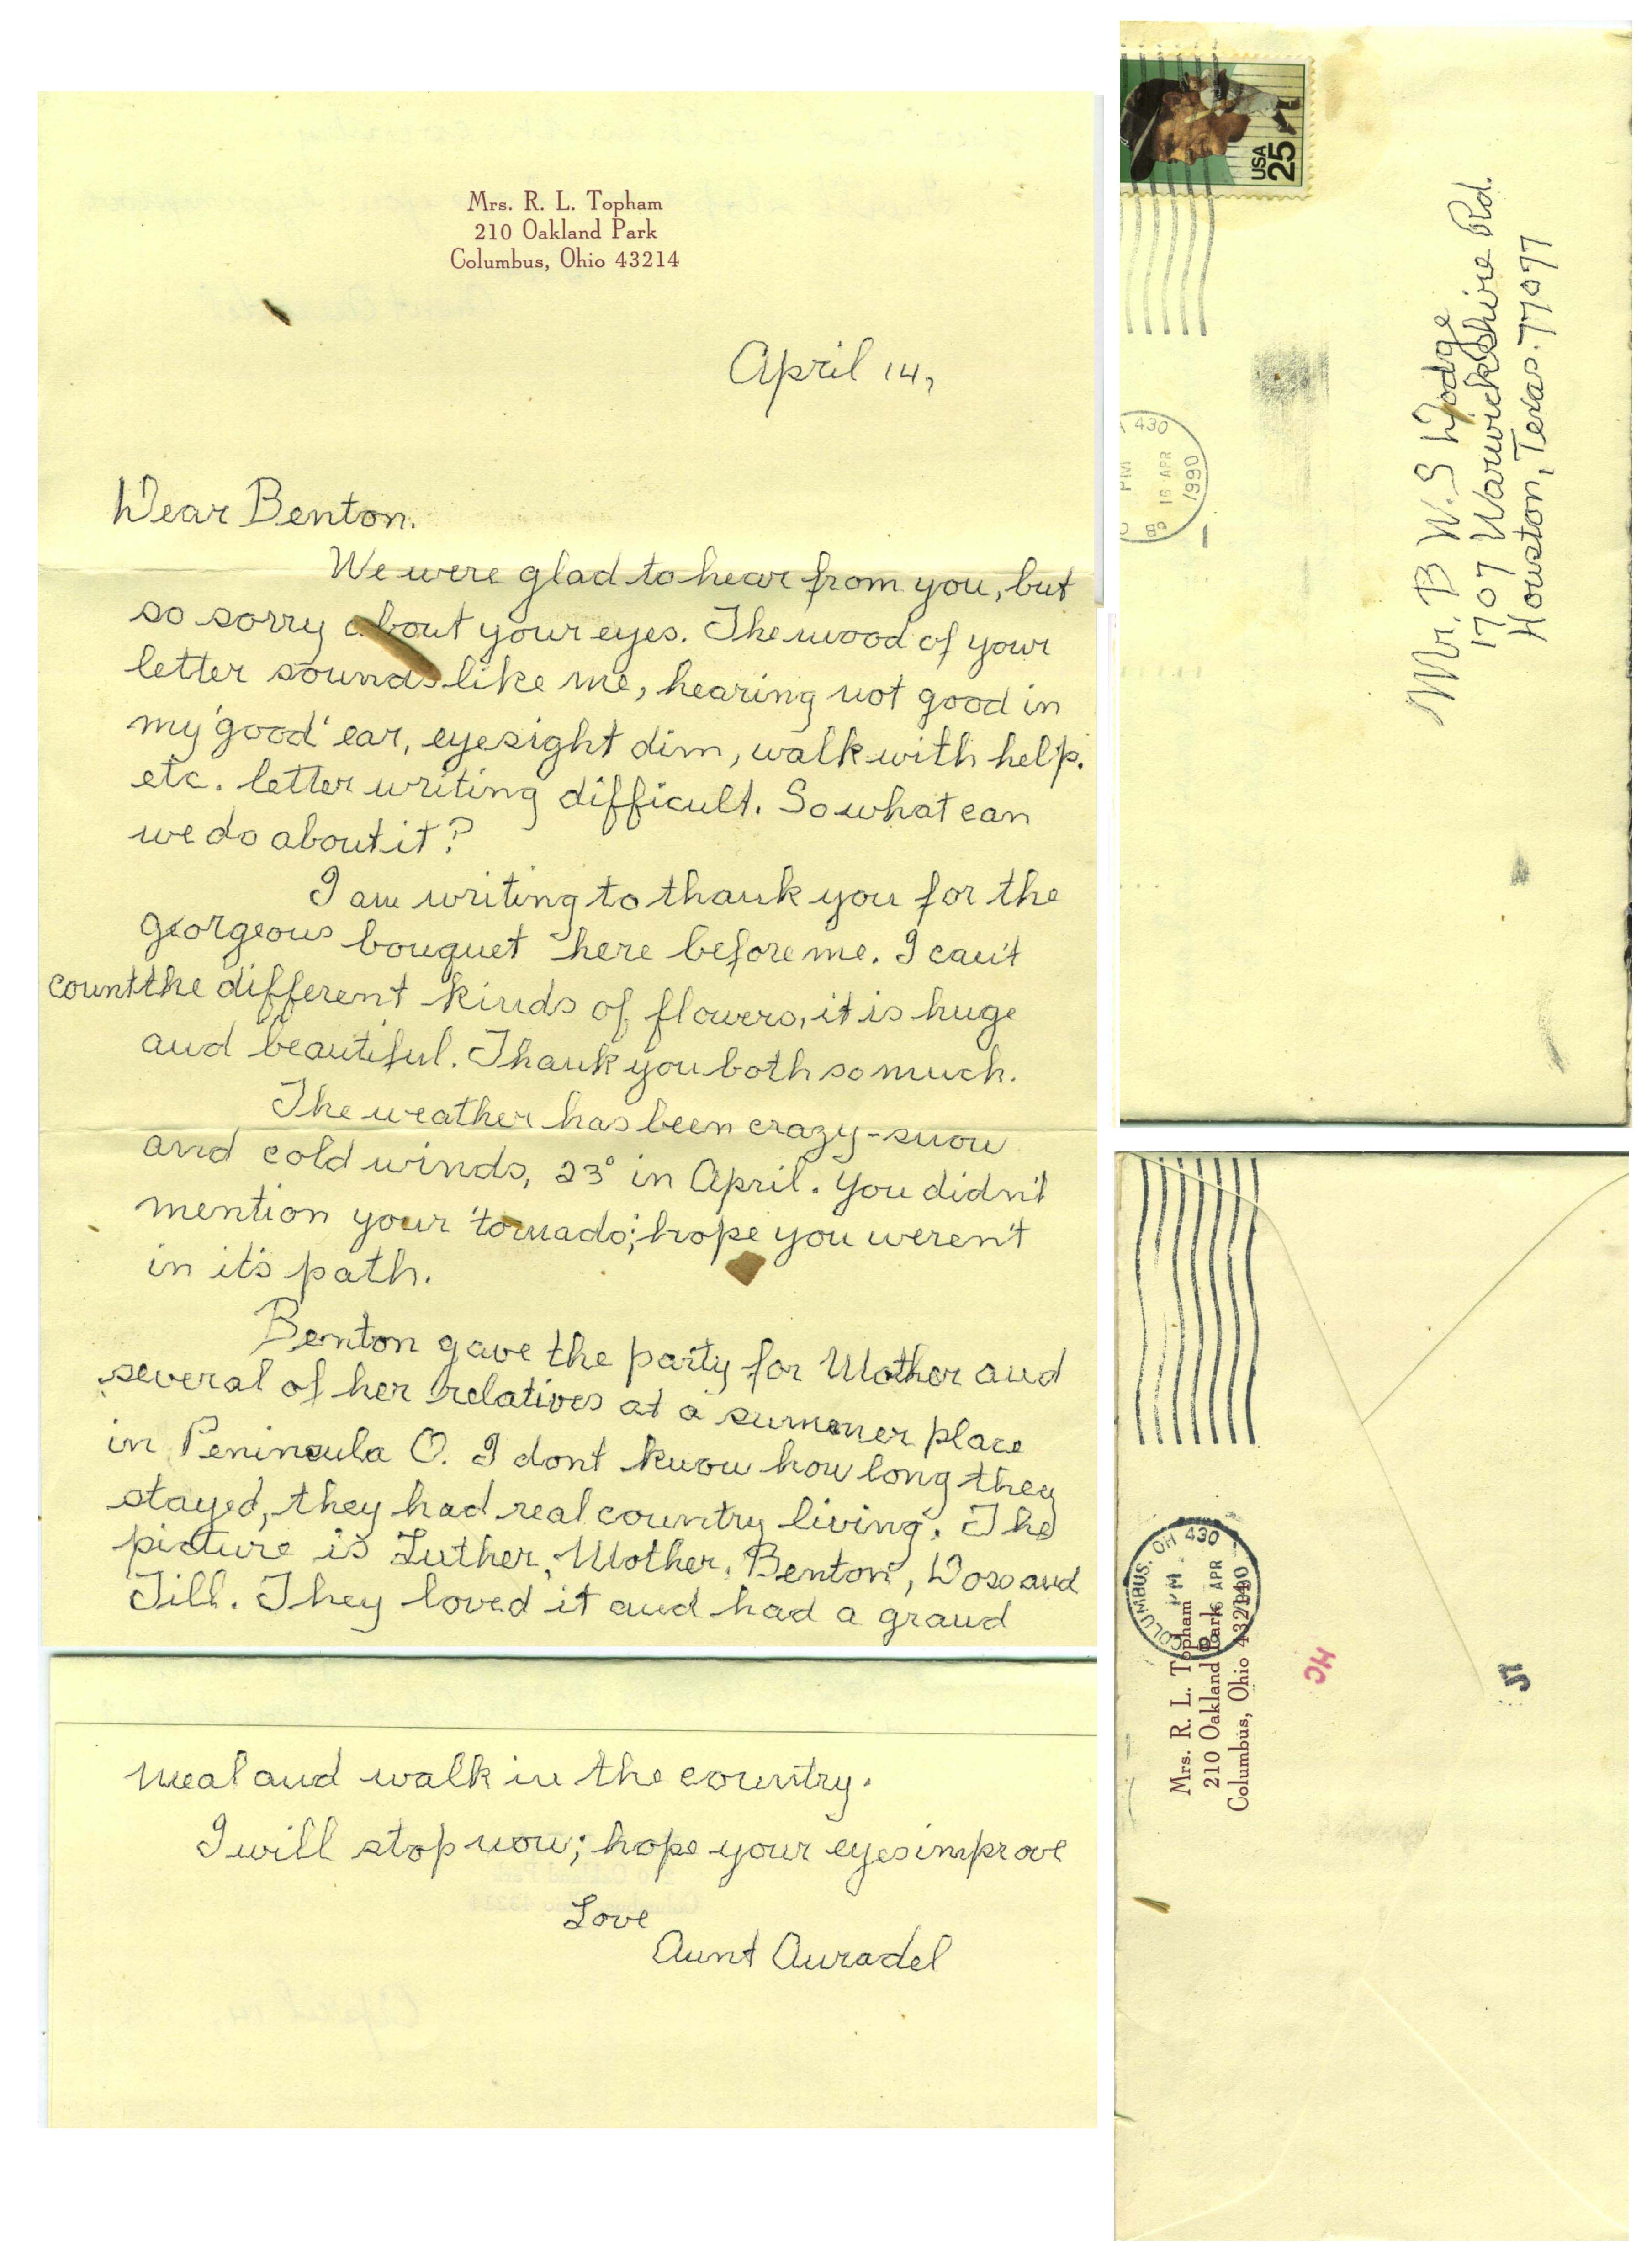 Mrs. R. L. Topham
210 Oakland Park
Columbus, Ohio 43214
April 14,
Dear Benton.
We were glad to hear from you, but
so sorry about your eyes. The mood of your
letter sounds like me, hearing not good in
my 'good' ear, eyesight dim, walk with help.
etc. letter writing difficult. So what can
we do about it?
I am writing to thank you for the
georgeous bouquet here before me. I can't
count the different kinds of flowers, it is huge
and beautiful. Thank you both so much.
The weather has been crazy-snow
and cold winds, 23° in April. You didn't
mention your 'tornado'; hope you weren't
in it's path.
Benton gave the party for Mother and
several of her relatives at a summer place
in Peninsula O. I dont know how long they
stayed, they had real country living. The
picture is Luther, Mother, Benton, Doso and
Jill. They loved it and had a grand
meal and walk in the country.
I will stop now; hope your eyes improve
Love
Aunt Auradel
USA
25
430
PM
16 APR
1990
Mr. B W. S Dodge
1707 Warwickshire Rd.
Houston, Texas. 77077
COLUMBUS, OH 430
PM
16 APR
1990
Mrs. R. L. Topham
210 Oakland Park
Columbus, Ohio 43214